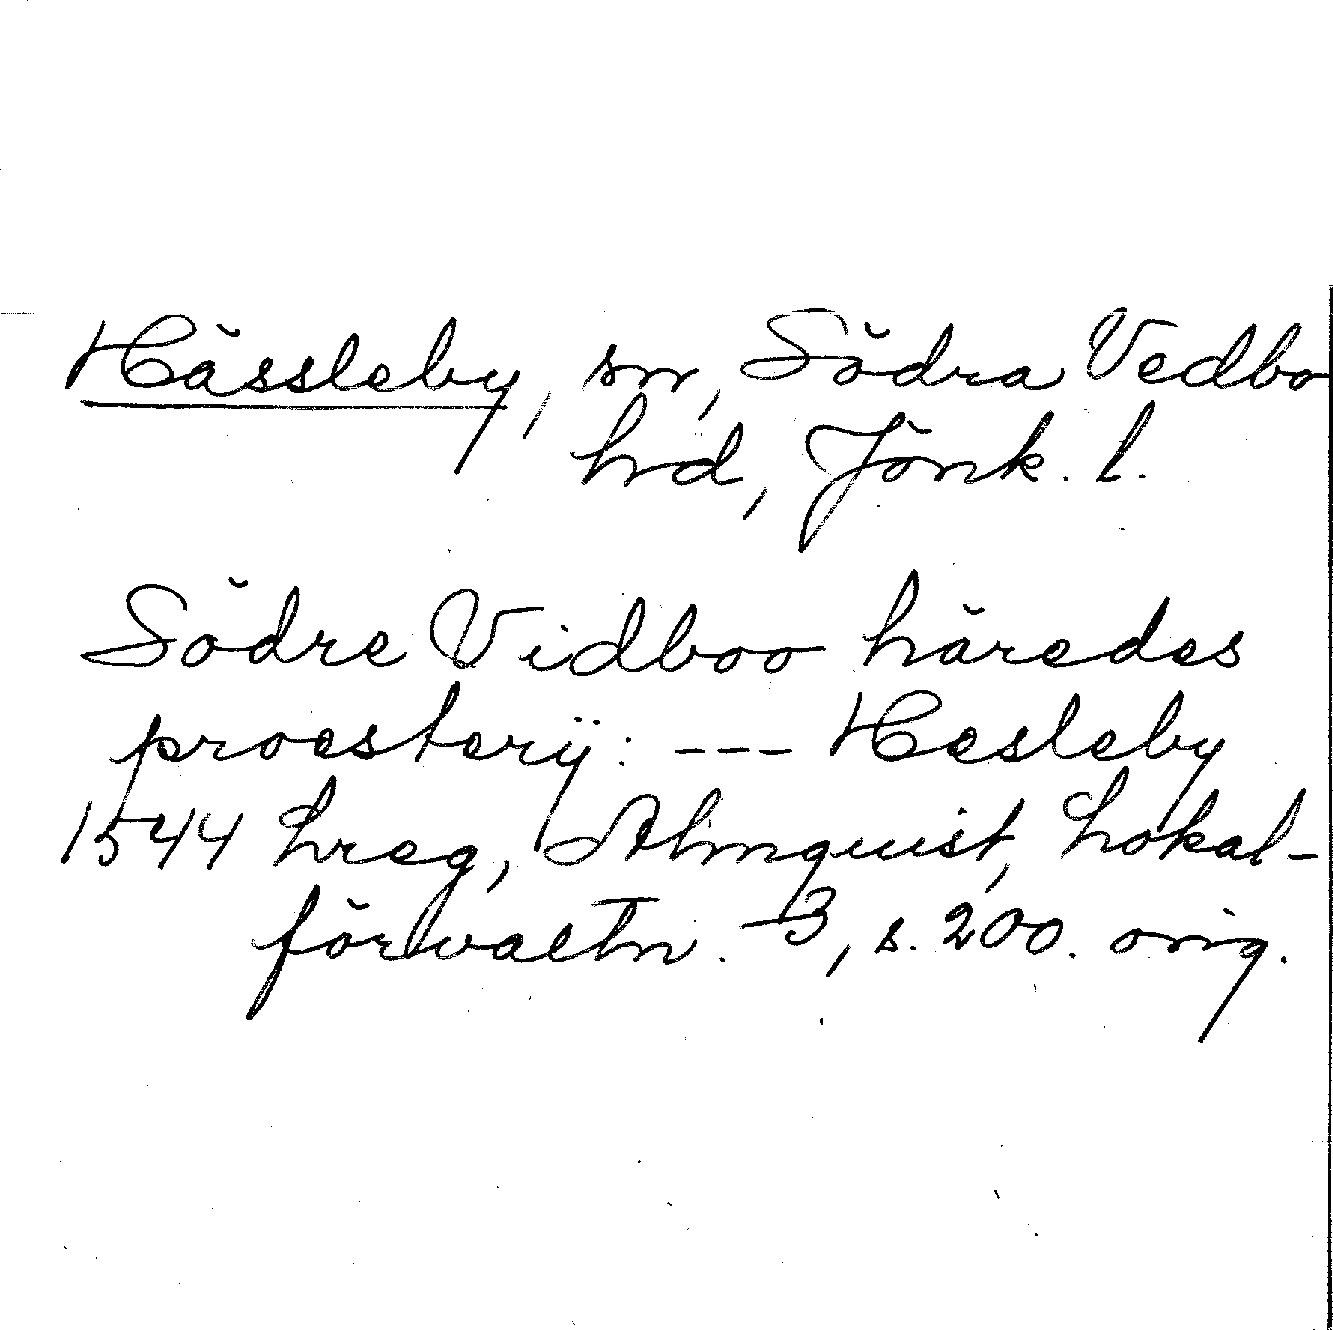 Hässleby, sn, Södra Vedbo
hd, Jönk. l.
Södre Vidboo häredes
proesterÿ: --- Hesleby
1544 hreg, Almquist, Lokal-
förvaltn. 3, s. 200. orig.